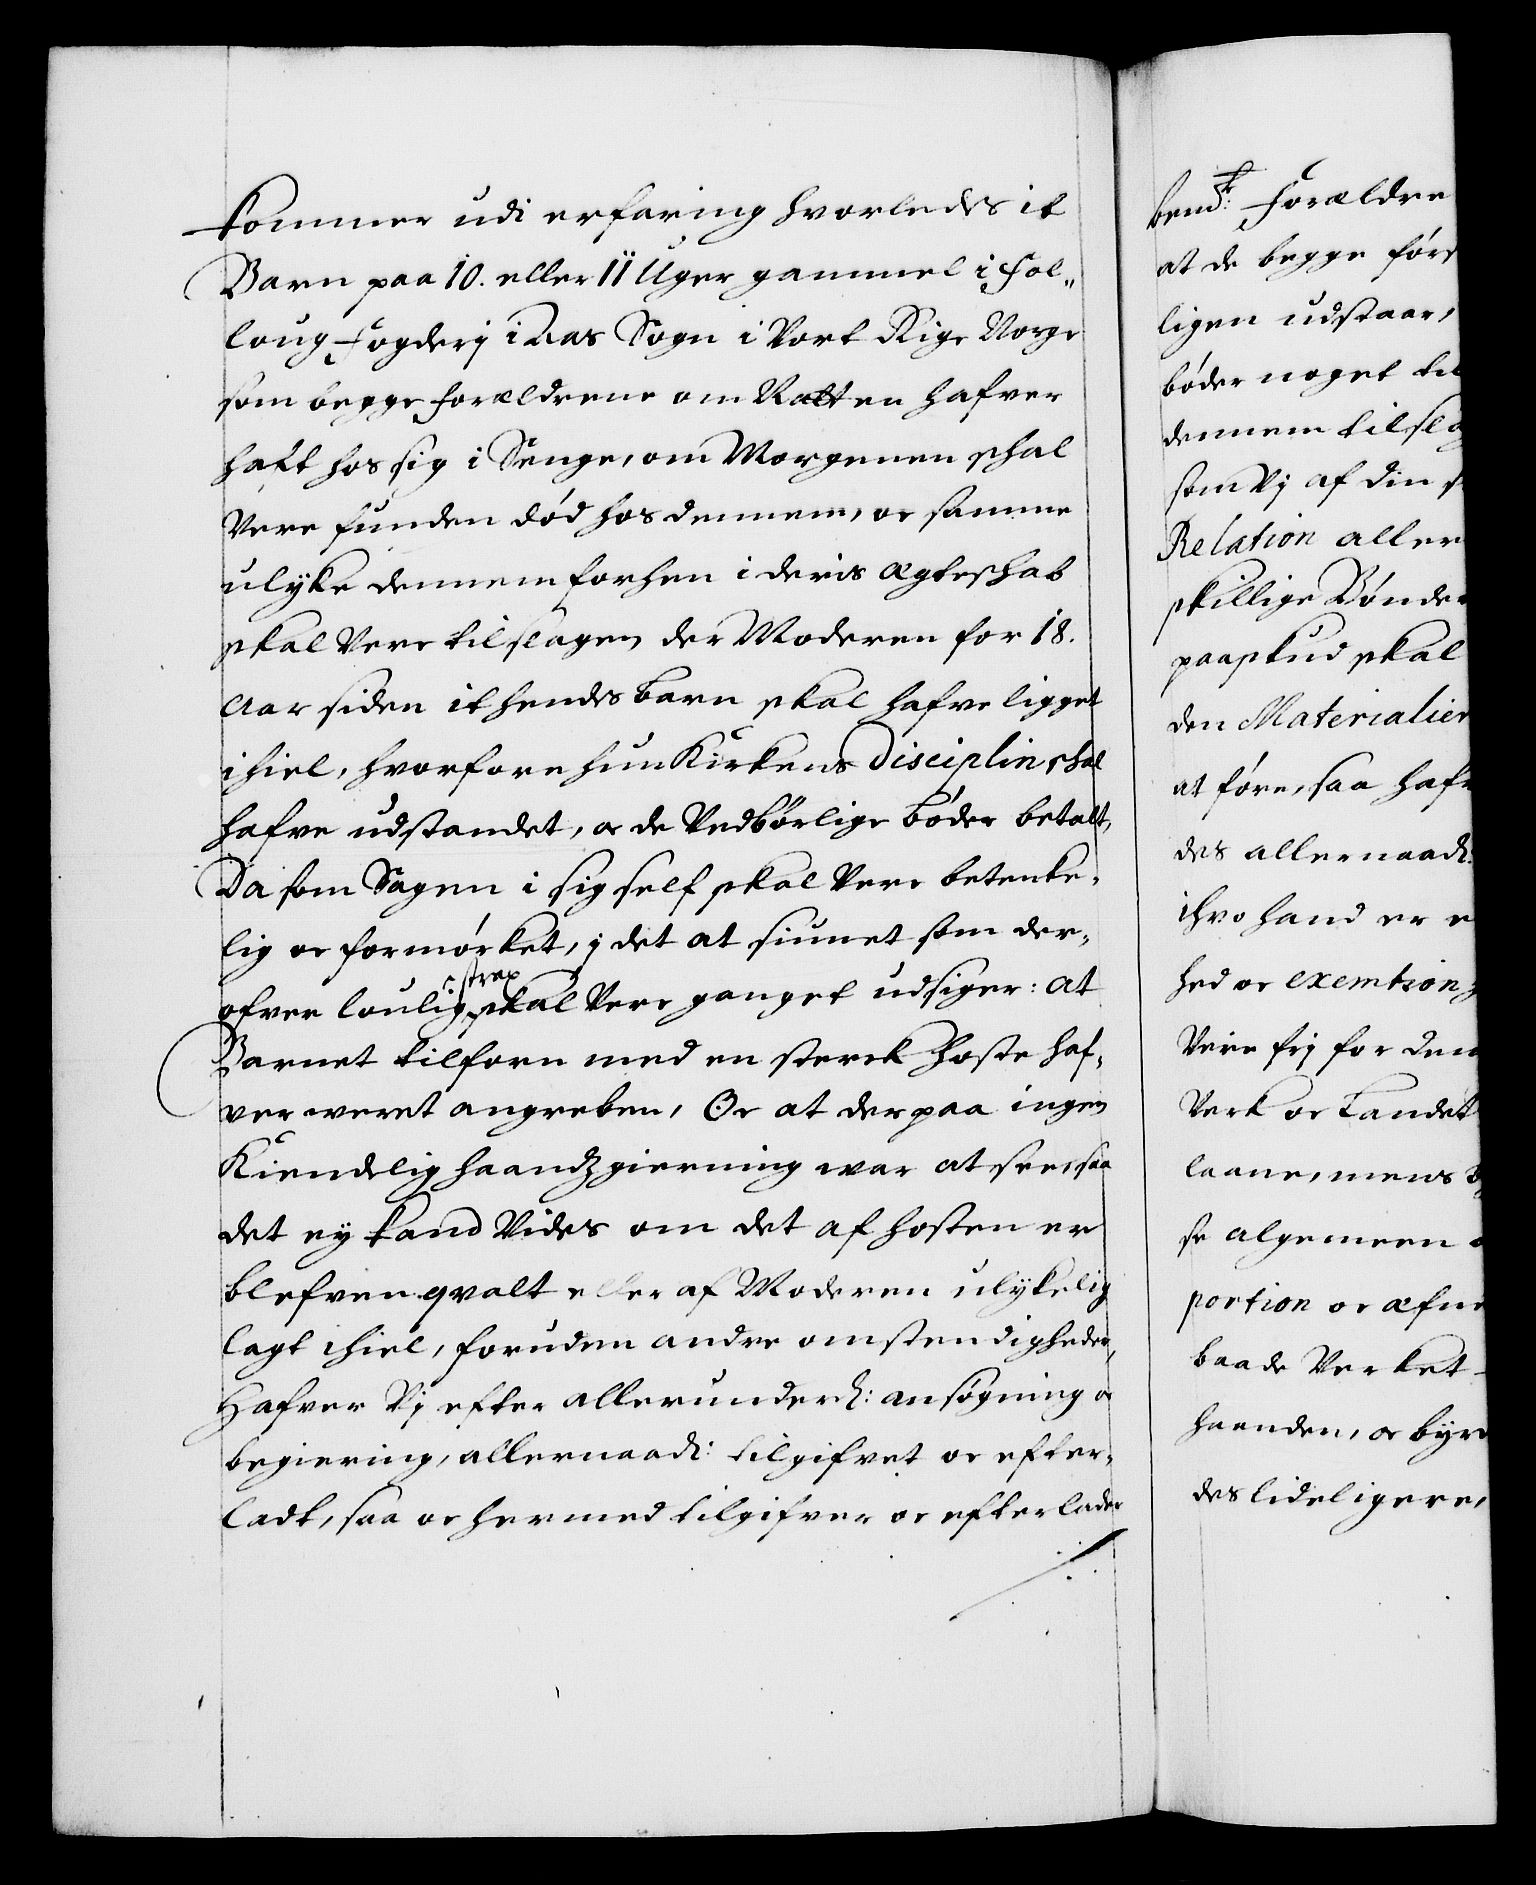 kommer udi erfaring hvorledes it
Barn paa 10. eller 11 Uger gammel i Fol„
loug Fogderj i Aas Sogn i Vort Rige Norge
som begge Forældrene om Natten hafver
haft hos sig i Senge, om Morgenen schal
Vere funden død hos dennem, oc samme
ulyke dennem forhen i deris ægteschab
skal Vere tilslagen, der Moderen for 18.
Aar siden it hendes barn skal hafve ligget
ihiel, hvorfore hun Kirkens Disciplin schal
hafve udstandet, oc de Vedbørlige bøder betalt,
Da som Sagen i sig self skal Vere betenke„
lig oc formørket, j det at siunet som der„
strax
ofver loulig skal Vere ganget udsiger: at
Barnet tilforn med en sterck Hoste haf„
ver weret angreben, Oc at der paa ingen
Kiendelig haandzgierning war at see, saa
det ey kand Vides om det af hosten er
blefven qvalt eller af Moderen ulykelig
lagt ihiel, foruden andre omstendigheder,
Hafver Vj efter allerunderd: ansøgning oc
begiering, allernaad: tilgifvet oc efter„
ladt, saa oc hermed tilgifver oc efterlader
bemt: Forældre
at de begge førs
ligen udstaar,
bøder noget til
dennem tilslag
som Vj af din
Relation aller
skillige Bønder
paaskud skal
den Materialier
at føre, saa hafv
des allernaad:
ihvo hand er e
hed oc exemtion
Vere frj for den
Verk oc Landet
laane, mens
se algemeen
portion oc æfne
baade Verket
haanden, oc byr
des lideligere,